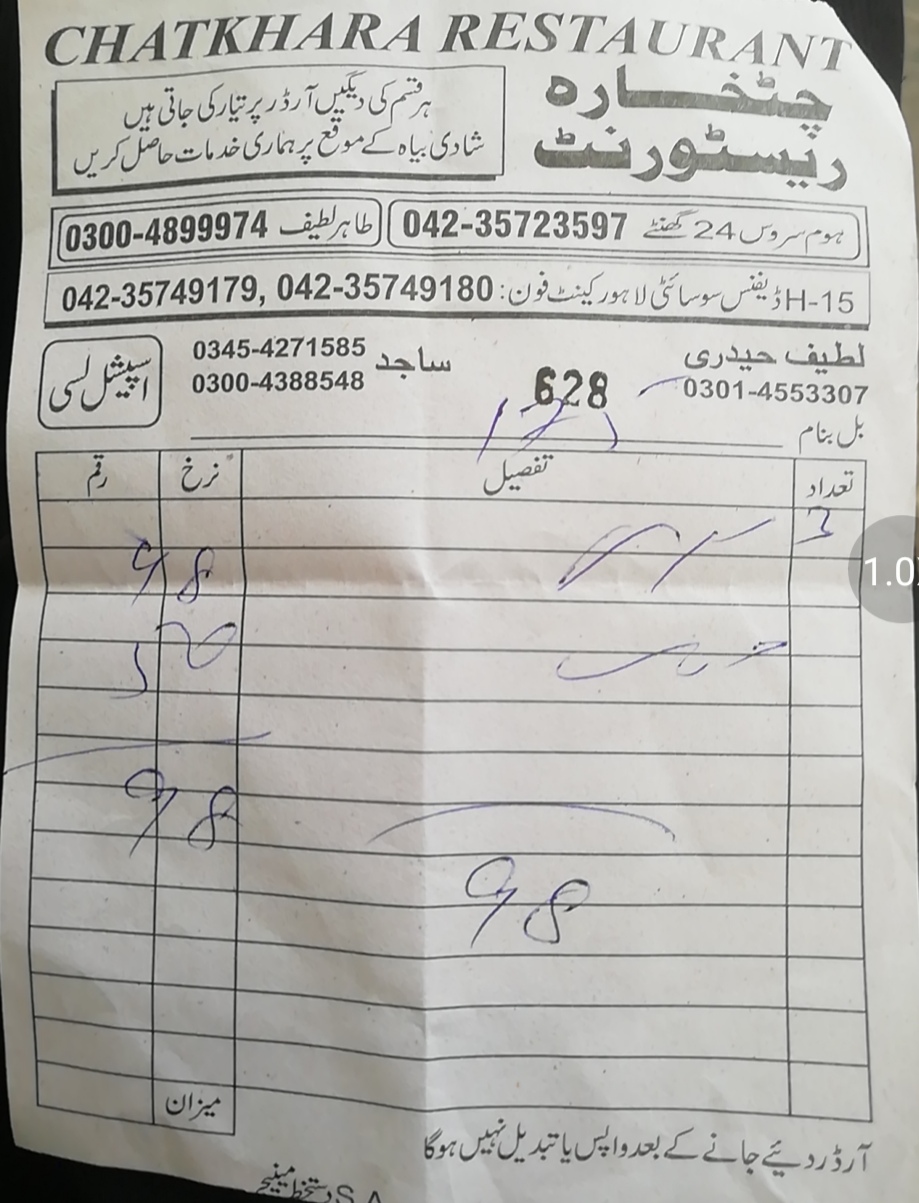 CHATKHARA RESTAURANT
چٹخارہ
ریسٹورنٹ
ہر قسم کی دیگیں آرڈر پر تیار کی جاتی ہیں
شادی بیاہ کے موقع پر ہماری خدمات حاصل کریں
ہوم سروس 24 گھنٹے 042-35723597
طاہر لطیف 0300-4899974
H-15 ڈیفنس سوسائٹی لاہور کینٹ فون: 042-35749179, 042-35749180
لطیف حیدری
0301-4553307
628
ساجد 0345-4271585
0300-4388548
اسپیشل لسی
بل بنام
تعداد تفصیل نرخ رقم
3
98
98
98
میزان
آرڈر دئیے جانے کے بعد واپس یا تبدیل نہیں ہوگا
دستخط مینیجر
1.0